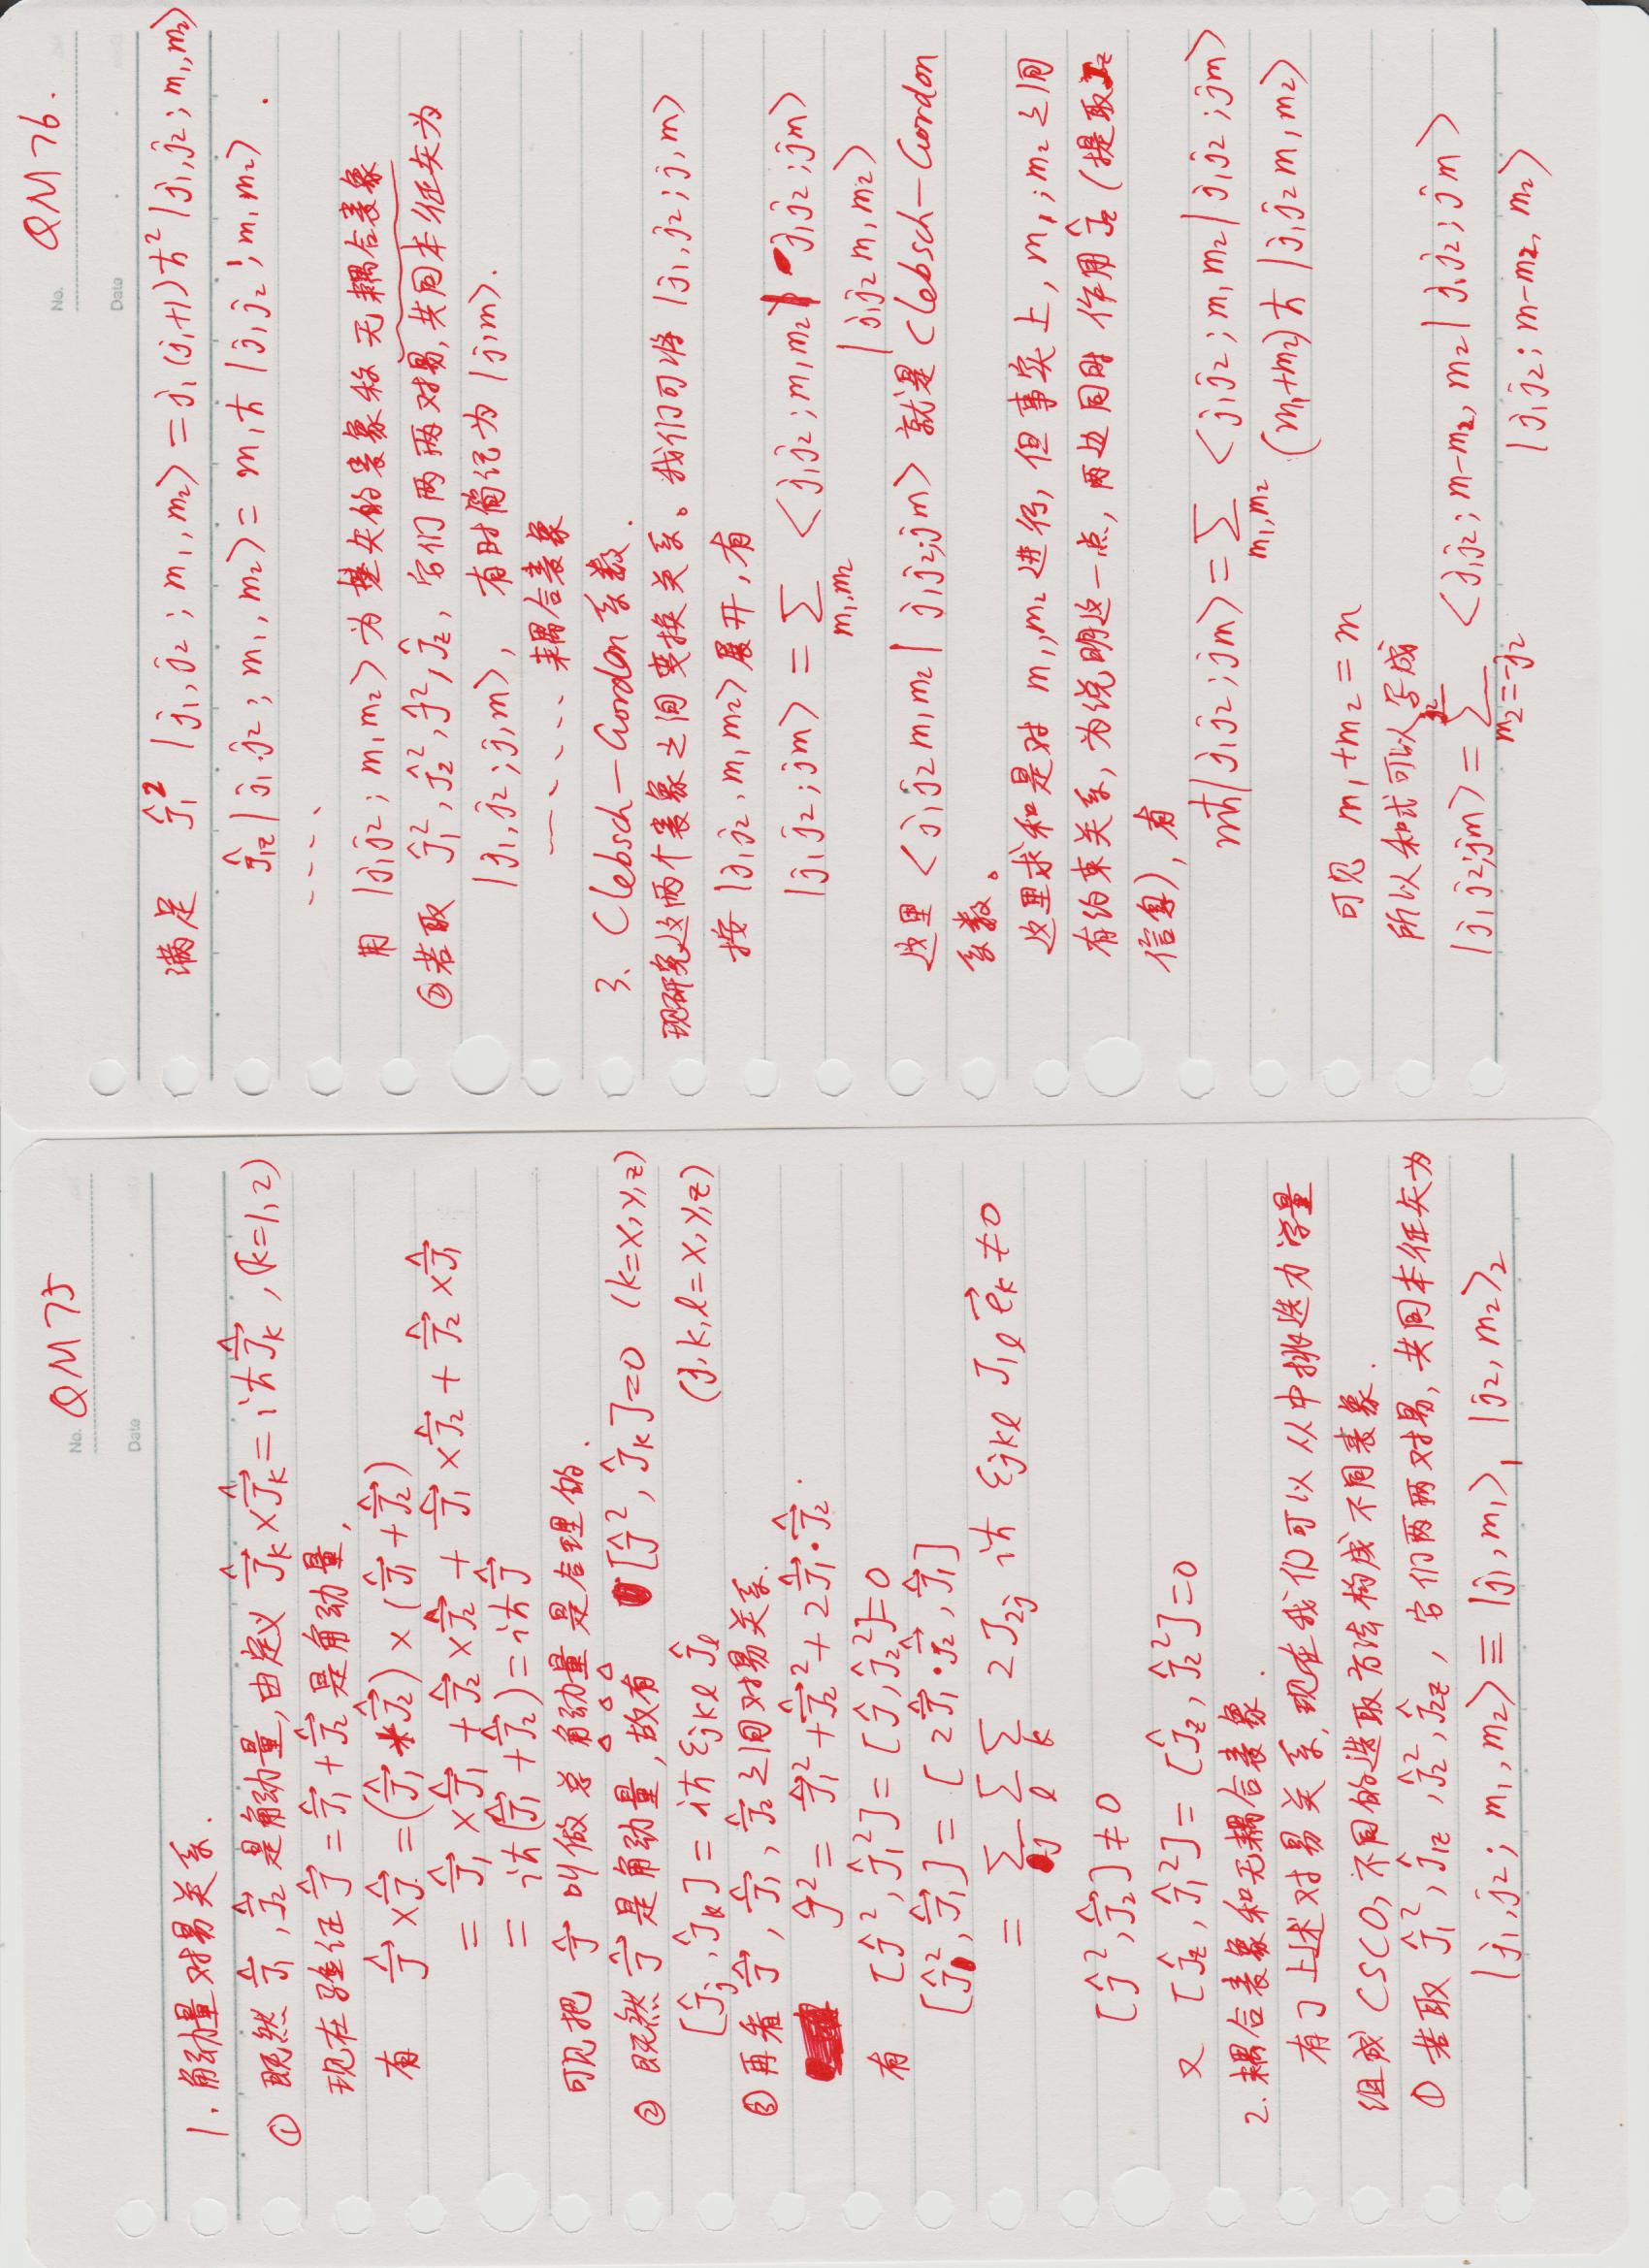 No. QM75
Date
1. 角动量对易关系.
① 既然 Ĵ⃗₁, Ĵ⃗₂ 是角动量, 由定义 Ĵ⃗ₖ×Ĵ⃗ₖ = iħĴ⃗ₖ, (k=1,2)
现在验证 Ĵ⃗ = Ĵ⃗₁+Ĵ⃗₂ 是角动量,
有 Ĵ⃗×Ĵ⃗ = (Ĵ⃗₁+Ĵ⃗₂)×(Ĵ⃗₁+Ĵ⃗₂)
= Ĵ⃗₁×Ĵ⃗₁ + Ĵ⃗₂×Ĵ⃗₂ + Ĵ⃗₁×Ĵ⃗₂ + Ĵ⃗₂×Ĵ⃗₁
= iħ(Ĵ⃗₁+Ĵ⃗₂) = iħĴ⃗
可见把 Ĵ⃗ 叫做总角动量是合理的.
② 既然 Ĵ⃗ 是角动量, 故有 [Ĵ², Ĵₖ]=0 (k=x,y,z)
[Ĵⱼ, Ĵₖ] = iħ εjkl Ĵl (j,k,l=x,y,z)
③ 再看 Ĵ⃗, Ĵ⃗₁, Ĵ⃗₂ 之间对易关系.
Ĵ² = Ĵ⃗₁² + Ĵ⃗₂² + 2Ĵ⃗₁·Ĵ⃗₂.
有 [Ĵ², Ĵ₁²] = [Ĵ, Ĵ₂²]=0
[Ĵ², Ĵ⃗₁] = [2Ĵ⃗₁·Ĵ⃗₂, Ĵ⃗₁]
= Σj Σl Σk 2J₂j iħ εjkl J₁l e⃗k ≠0
[Ĵ², Ĵ⃗₂] ≠0
又 [Ĵz, Ĵ₁²] = [Ĵz, Ĵ₂²]=0
2. 耦合表象和无耦合表象.
有了上述对易关系, 现在我们可以从中挑选力学量
组成CSCO, 不同的选取方法构成不同表象.
① 若取 Ĵ₁², Ĵ₁z, Ĵ₂², Ĵ₂z, 它们两两对易, 共同本征矢为
|j₁,j₂; m₁,m₂⟩ ≡ |j₁,m₁⟩₁ |j₂,m₂⟩₂
No. QM76.
Date
满足 Ĵ₁² |j₁,j₂; m₁,m₂⟩ = j₁(j₁+1)ħ² |j₁,j₂; m₁,m₂⟩
Ĵ₁z |j₁,j₂; m₁,m₂⟩ = m₁ħ |j₁j₂; m₁m₂⟩.
....
用 |j₁j₂; m₁m₂⟩ 为基矢的表象称无耦合表象
② 若取 Ĵ₁², Ĵ₂², Ĵ², Ĵz, 它们两两对易, 共同本征矢为
|j₁,j₂; j,m⟩, 有时简记为 |j,m⟩.
..... 耦合表象
3. Clebsch-Gordon系数.
现研究这两个表象之间变换关系。我们可将 |j₁,j₂; j,m⟩
按 |j₁j₂, m₁m₂⟩ 展开, 有
|j₁j₂; jm⟩ = Σm₁,m₂ <j₁j₂; m₁m₂| j₁j₂; jm⟩
|j₁j₂ m₁m₂⟩
这里 <j₁j₂ m₁m₂ | j₁j₂; jm⟩ 就是 Clebsch-Gordon
系数。
这里求和是对 m₁,m₂ 进行, 但事实上, m₁,m₂ 之间
有约束关系, 为说明这一点, 两边同时作用 Ĵz (提取Jz
信息), 有
mħ|j₁j₂; jm⟩ = Σm₁,m₂ <j₁j₂; m₁m₂ | j₁j₂; jm⟩
(m₁+m₂)ħ |j₁j₂ m₁m₂⟩
可见 m₁+m₂ = m
所以和式可以写成
|j₁j₂; jm⟩ = Σ(m₂=-j₂ → j₂) <j₁j₂; m-m₂, m₂ | j₁j₂; jm⟩
|j₁j₂; m-m₂, m₂⟩